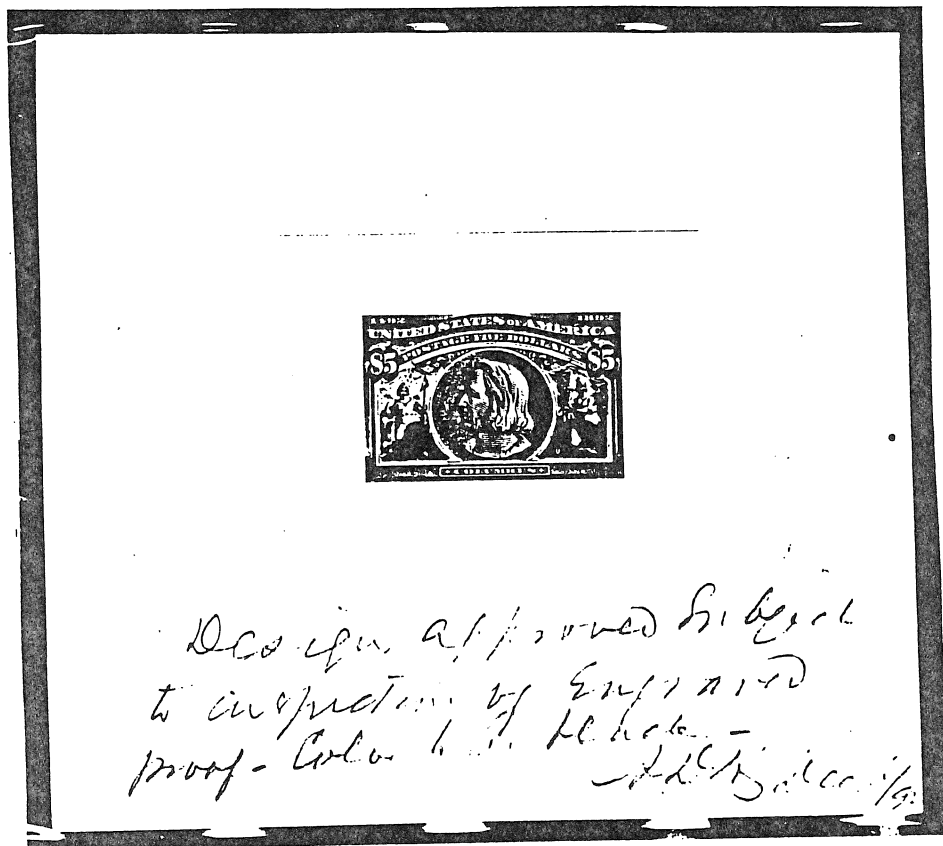 1492 1892
UNITED STATES OF AMERICA
POSTAGE FIVE DOLLARS
$5 $5
COLUMBUS
Design approved Subject
to inspection of Engraved
proof - Color to be black -